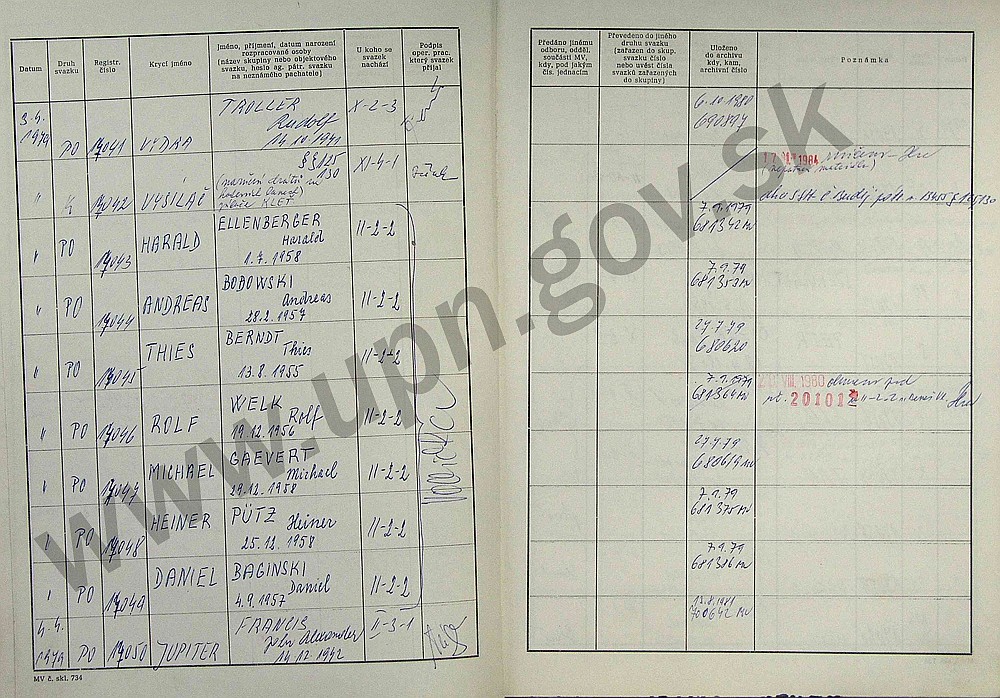 Datum
Druh svazku
Registr. číslo
Krycí jméno
Jméno, příjmení, datum narození
rozpracované osoby
(název skupiny nebo objektového
svazku, heslo ag. pátr. svazku
na neznámého pachatele)
U koho se
svazek
nachází
Podpis
oper. prac.
který svazek
přijal
Předáno jinému
odboru, odděl.
součásti MV,
kdy, pod jakým
čís. jednacím
Převedeno do jiného
druhu svazku
(zařazen do skup.
svazku číslo
nebo uvést čísla
svazků zařazených
do skupiny)
Uloženo
do archivu
kdy, kam,
archivní číslo
Poznámka
3.4.
1979 PO 17041 VYDRA TROLLER
Rudolf
14.10.1941 X-2-3
6.10.1980
690897
" K 17042 VYSÍLAČ §§ 125
130
KLET XI-4-1
1984
" PO 17043 HARALD ELLENBERGER
Harald
1.7.1958 II-2-2
7.9.1979
681342 MV
" PO 17044 ANDREAS BOBOWSKI
Andreas
28.2.1957 II-2-2
7.9.79
681353 MV
" PO 17045 THIES BERNDT
Thies
13.8.1955 II-2-2
27.7.79
680620
" PO 17046 ROLF WELK
Rolf
19.12.1956 II-2-2
7.9.1979
681364 MV
VIII. 1980
20101
" PO 17047 MICHAEL GAEVERT
Michael
29.12.1958 II-2-2
27.7.79
680619 MV
" PO 17048 HEINER PÜTZ
Heiner
25.12.1958 II-2-2
7.9.79
681375 MV
" PO 17049 DANIEL BAGINSKI
Daniel
4.9.1957 II-2-2
7.9.79
681386 MV
4.4.
1979 PO 17050 JUPITER FRANCIS
John Alexander
14.12.1942 II-3-1
13.8.1981
700642 MV
MV č. skl. 734
www.upn.gov.sk